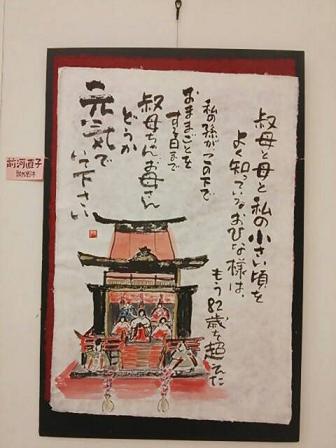 叔母と母と私の小さい頃を
よく知っているおひな様は、
もう82歳を超えた
私の孫がこの下で
おままごとを
する日まで
叔母ちゃんお母さん
どうか
元気で
いて下さい
前河直子